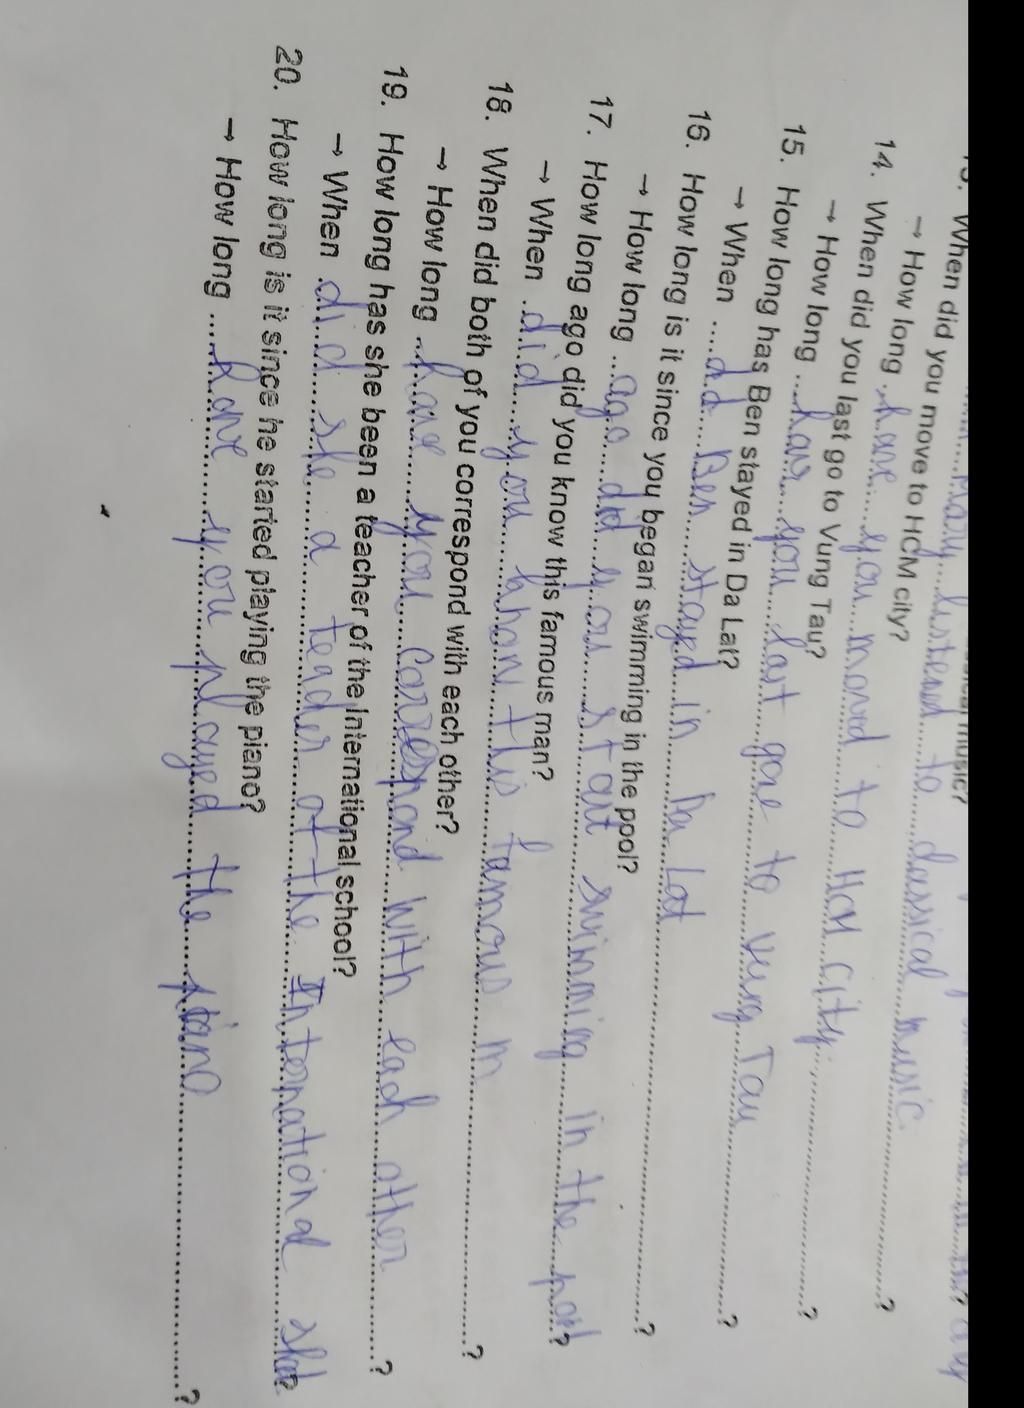 Mary listened to classical music
13. When did you move to HCM city?
→ How long have you moved to HCM city ?
14. When did you last go to Vung Tau?
→ How long have you last gone to Vung Tau ?
15. How long has Ben stayed in Da Lat?
→ When did Ben stayed in Da Lat ?
16. How long is it since you began swimming in the pool?
→ How long ago did you start swimming in the pool ?
17. How long ago did you know this famous man?
→ When did you know this famous m ?
18. When did both of you correspond with each other?
→ How long have you correspond with each other ?
19. How long has she been a teacher of the International school?
→ When did she a teacher of the International ?
20. How long is it since he started playing the piano?
→ How long have you played the piano ?